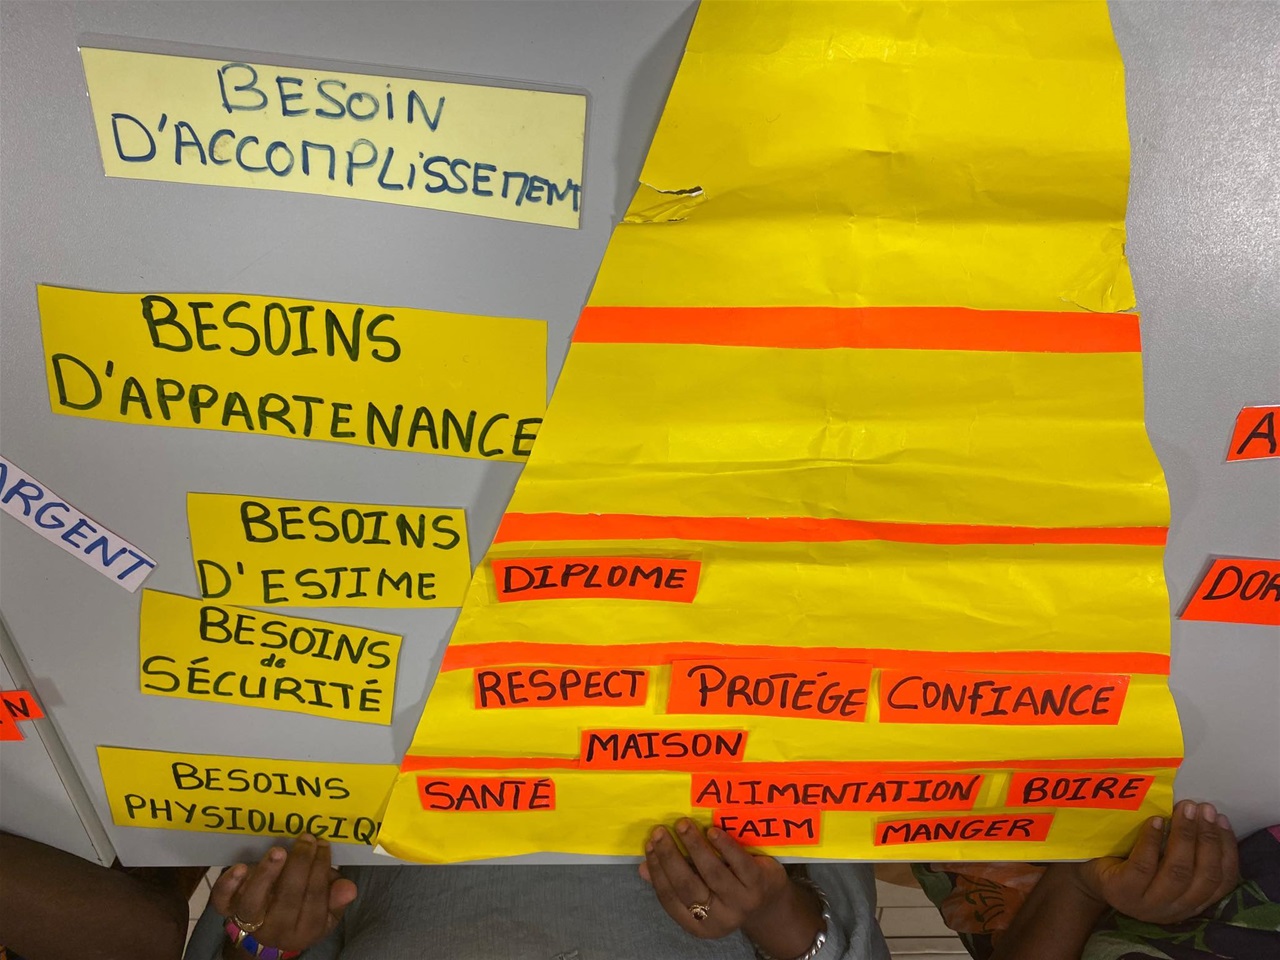 BESOIN
D'ACCOMPLISSEMENT
BESOINS
D'APPARTENANCE
ARGENT
BESOINS
D'ESTIME
DIPLOME
BESOINS
de
SÉCURITÉ
RESPECT
PROTÉGE
CONFIANCE
MAISON
BESOINS
PHYSIOLOGIQ
SANTÉ
ALIMENTATION
BOIRE
FAIM
MANGER